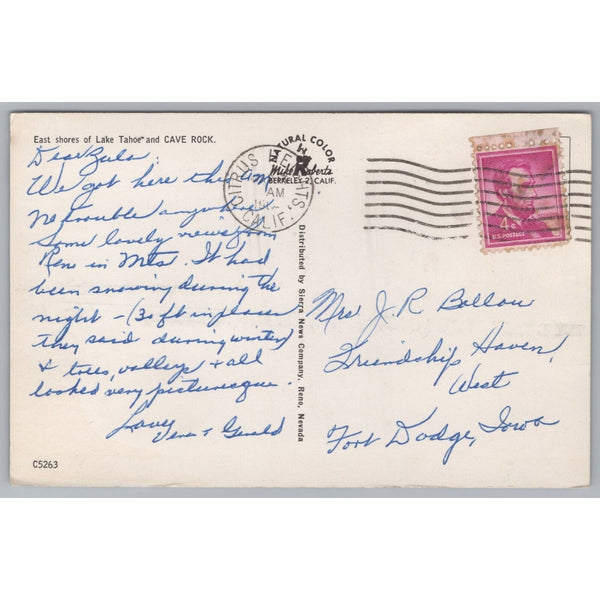 East shores of Lake Tahoe and CAVE ROCK.
Dear Zula:
We got here this am
No trouble anywhere.
Some lovely views from
Reno in Mts. It had
been snowing during the
night - (30 ft in places
they said during winter)
& trees, valleys & all
looked very picturesque.
Love,
Vena & Gerald
C5263
NATURAL COLOR
Mike Roberts
BERKELEY 2, CALIF.
CITRUS HEIGHTS,
AM
CALIF.
Distributed by Sierra News Company, Reno, Nevada
4¢
U.S. POSTAGE
Mrs J. R. Ballou
Friendship Haven,
West
Fort Dodge, Iowa